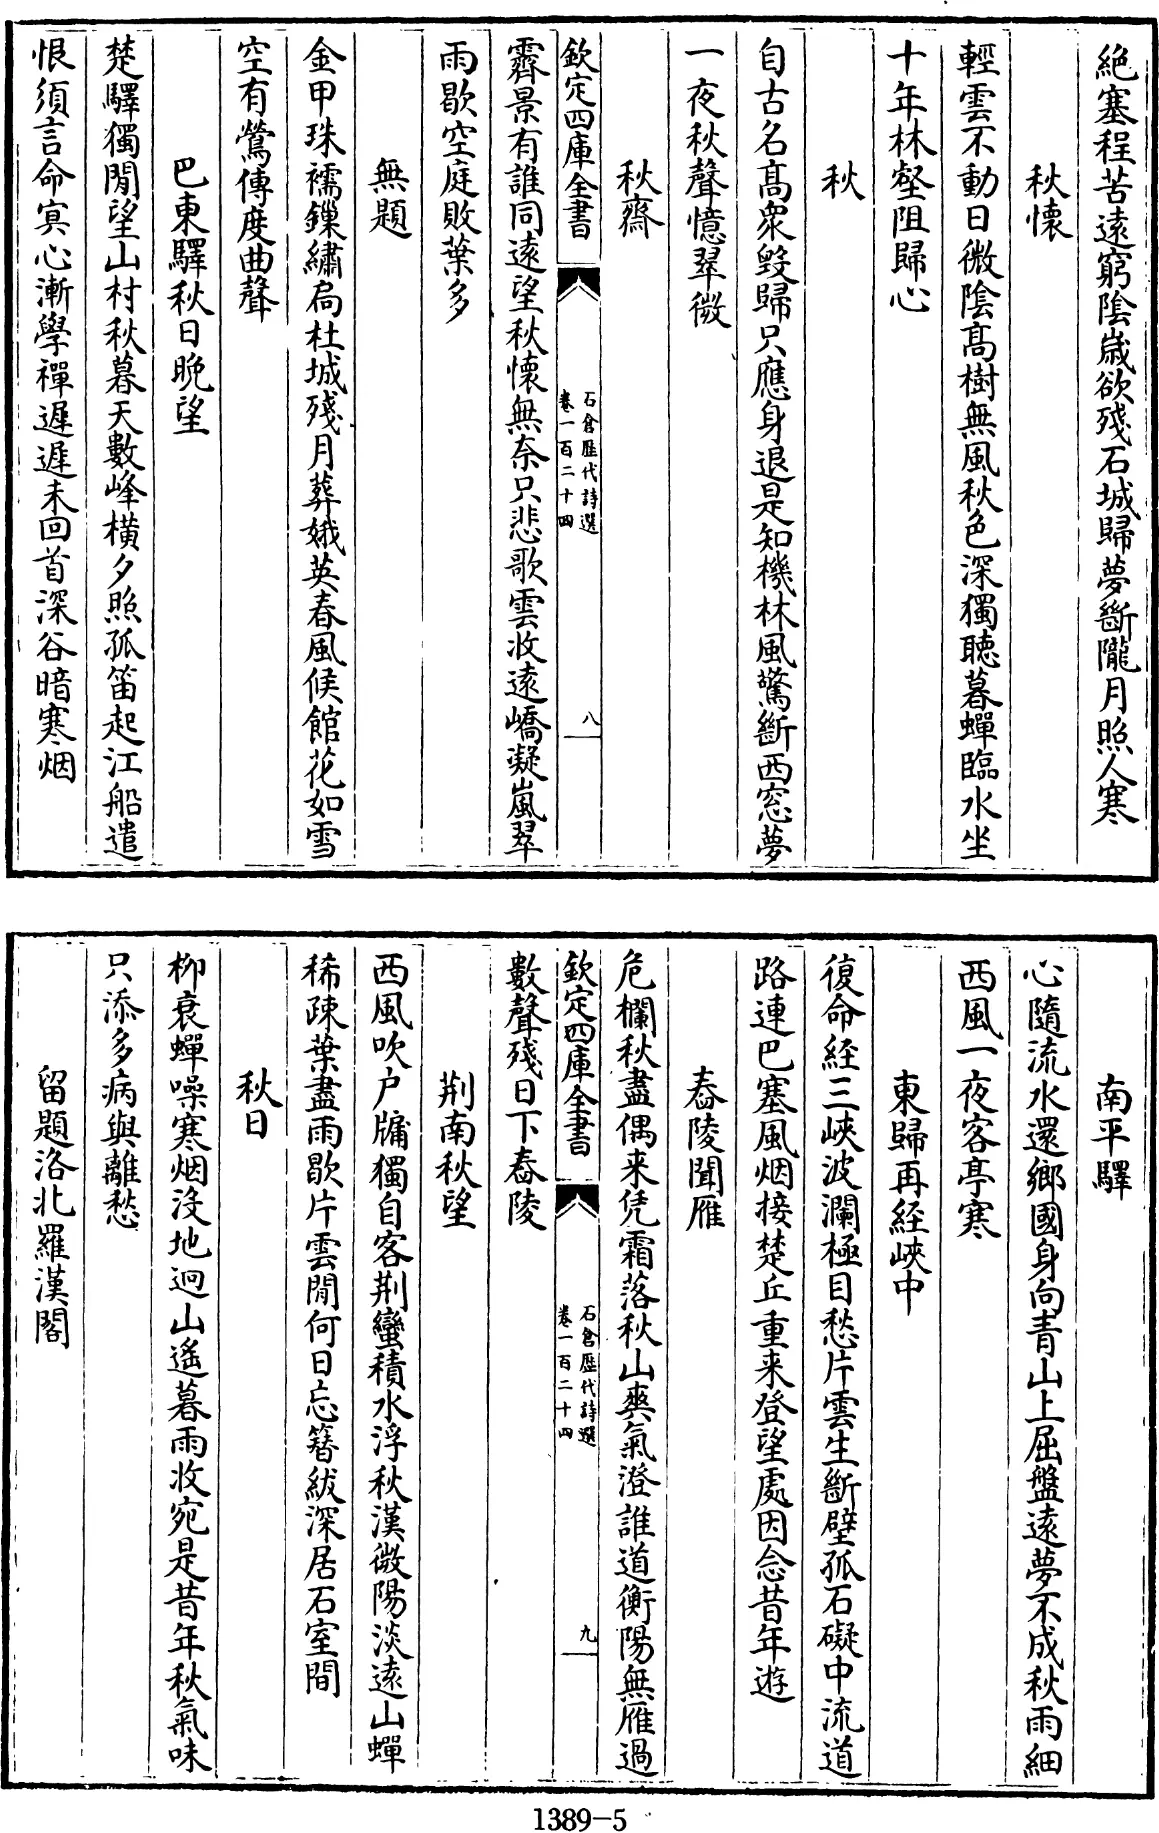 絶塞程苦遠窮陰嵗欲殘石城歸夢斷隴月照人寒
秋懐
輕雲不動日微陰髙樹無風秋色深獨聴暮蟬臨水坐
十年林壑阻歸心
秋
自古名髙衆毀歸只應身退是知機林風驚斷西窓夢
一夜秋聲憶翠微
秋齋
欽定四庫全書
石倉歴代詩選
卷一百二十四
八
霽景有誰同遠望秋懐無奈只悲歌雲收逺嶠凝嵐翠
雨歇空庭敗葉多
無題
金甲珠襦鏁繡扄杜城殘月葬娥英春風候館花如雪
空有鶯傳度曲聲
巴東驛秋日晩望
楚驛獨閒望山村秋暮天數峰横夕照孤笛起江船遣
恨須言命冥心漸學禪遲遲未回首深谷暗寒烟
南平驛
心隨流水還鄉國身向青山上屈盤逺夢不成秋雨細
西風一夜客亭寒
東歸再経峽中
復命経三峽波瀾極目愁片雲生斷壁孤石礙中流道
路連巴塞風烟接楚丘重来登望處因念昔年遊
舂陵聞雁
危欄秋盡偶来凭霜落秋山爽氣澄誰道衡陽無雁過
欽定四庫全書
石倉歴代詩選
卷一百二十四
九
數聲殘日下舂陵
荆南秋望
西風吹户牗獨自客荆蠻積水浮秋漢微陽淡逺山蟬
稀疎葉盡雨歇片雲閒何日忘簪紱深居石室間
秋日
栁衰蟬噪寒烟没地迥山遙暮雨收宛是昔年秋氣味
只添多病與離愁
留題洛北羅漢閣
1389-5